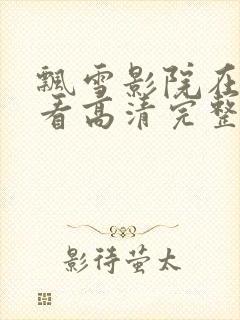 飘雪影院在
看高清完整
影待萤太